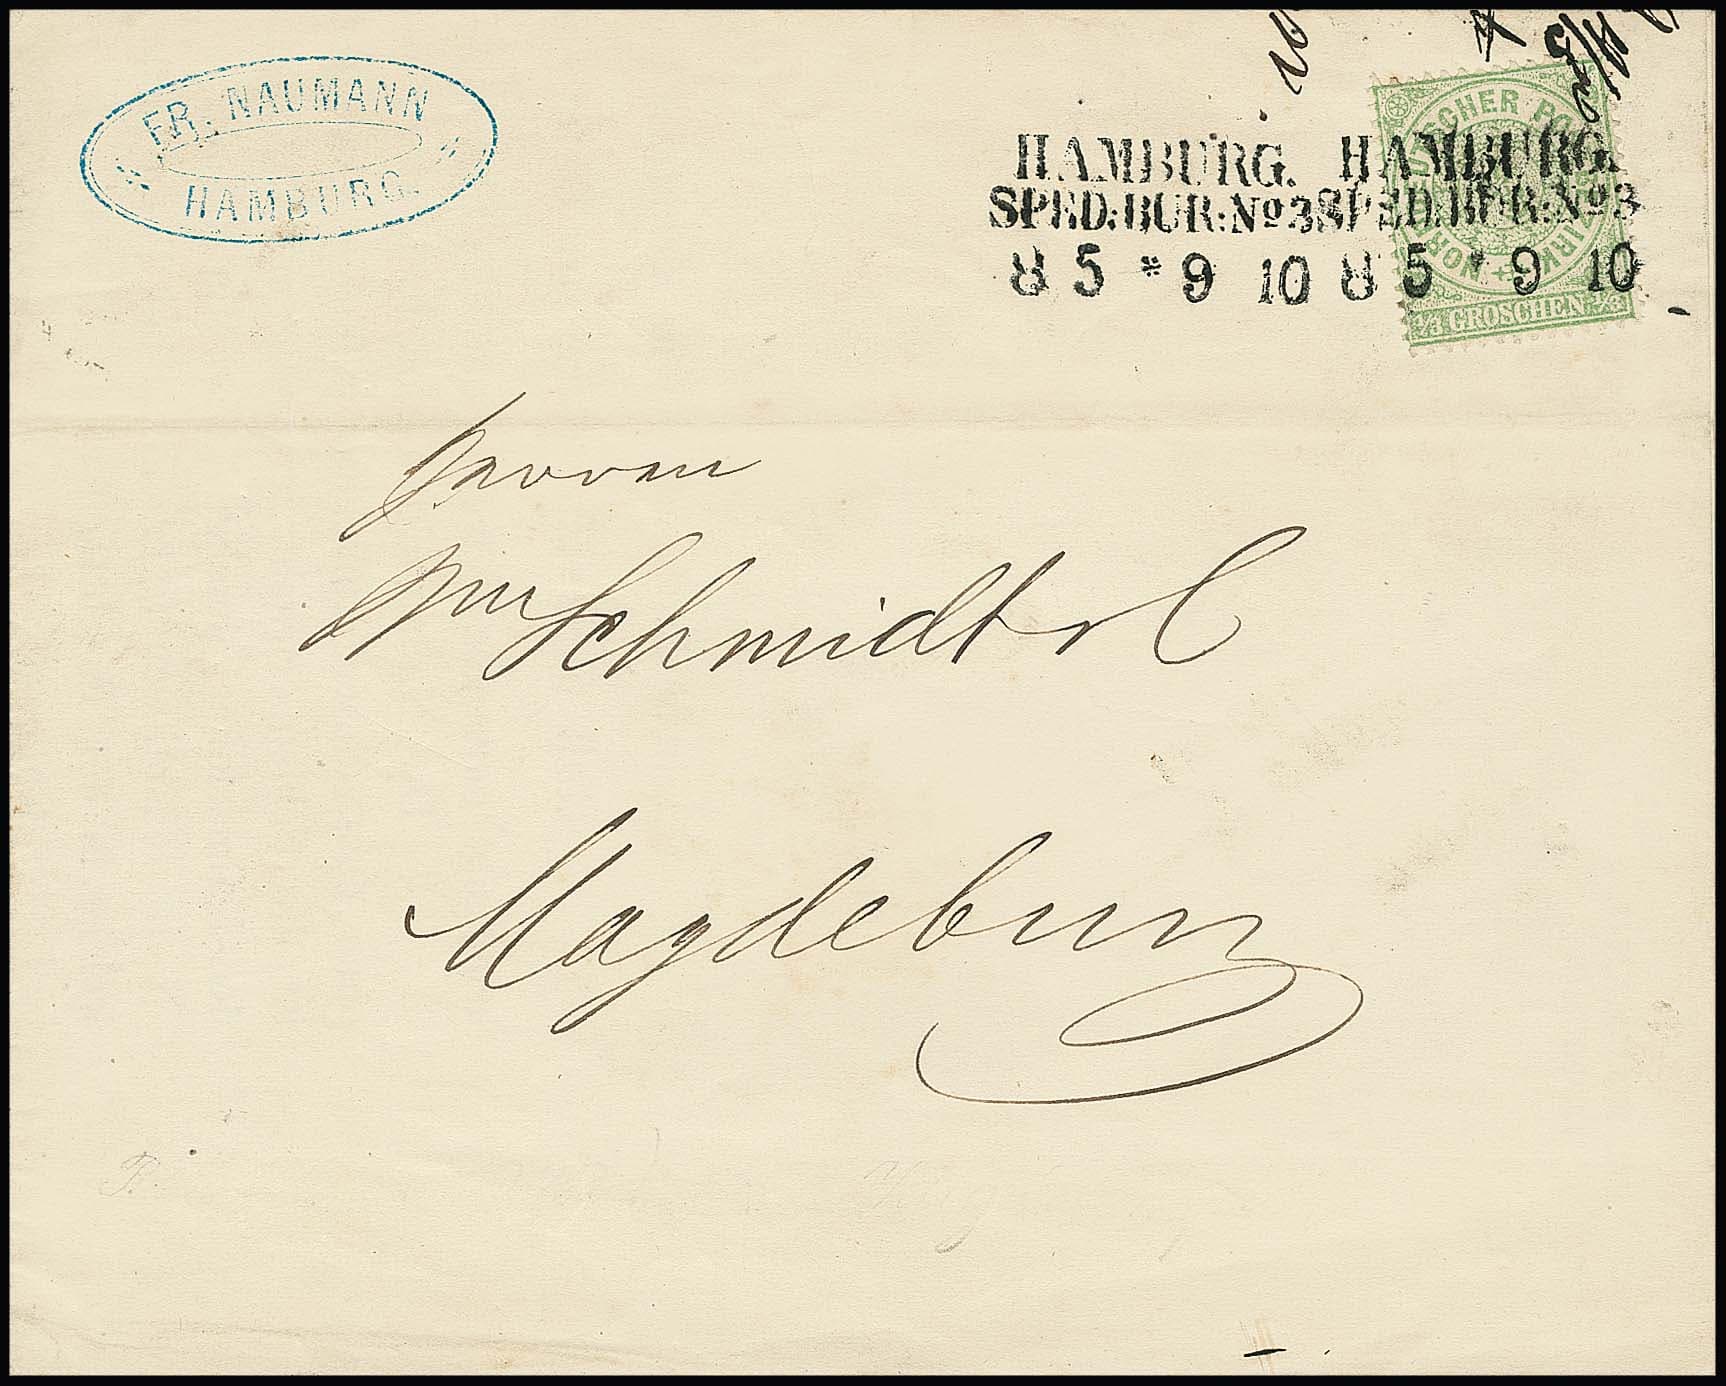 FR. NAUMANN
HAMBURG.
HAMBURG. HAMBURG.
SPED: BUR: No 3 SPED: BUR: No 3
8 5 * 9 10 8 5 * 9 10
NORDDEUTSCHER POSTBEZIRK
1/3 GROSCHEN 1/3
Herren
Schmidt & C
Magdeburg